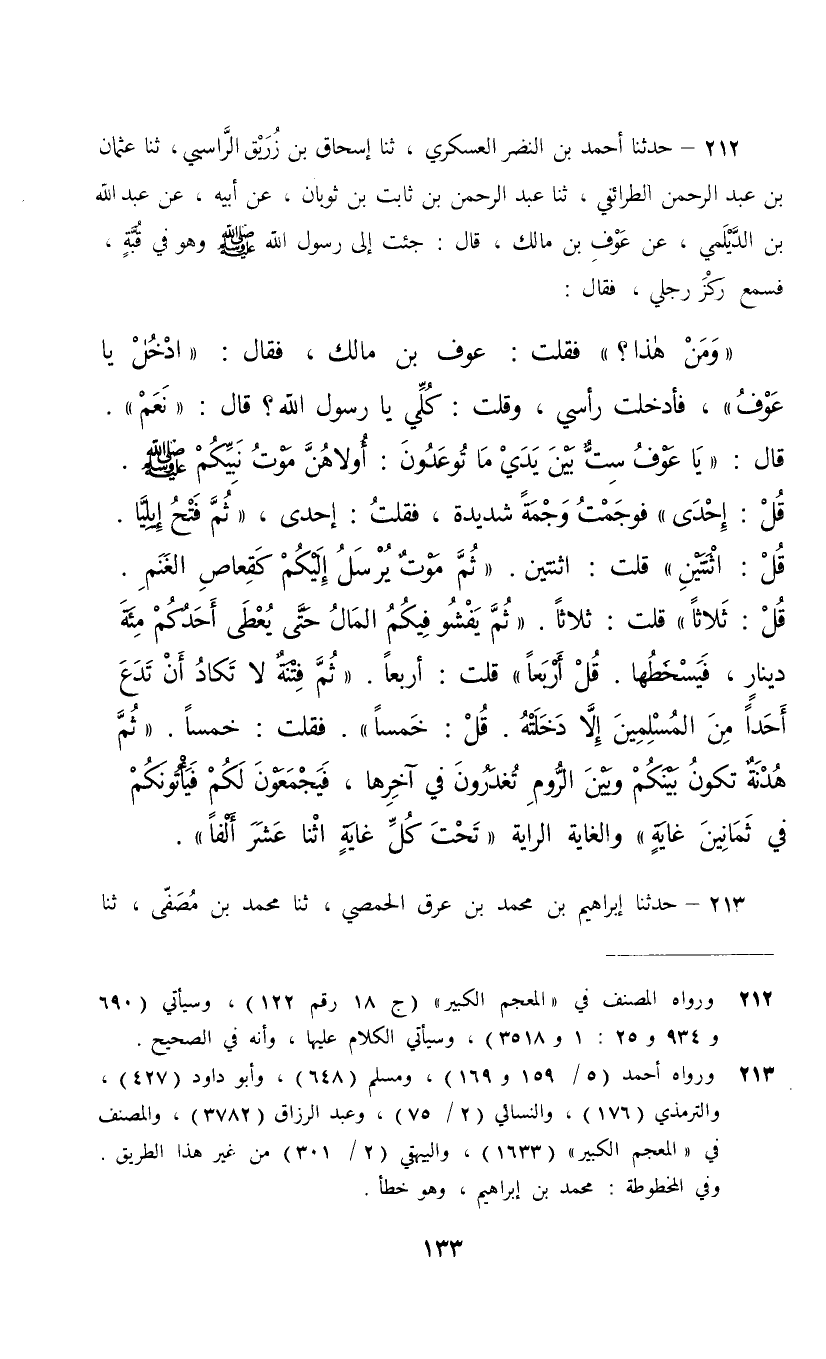 ٢١٢ – حدثنا أحمد بن النضر العسكري ، ثنا إسحاق بن زُرَيْق الرَّاسبي ، ثنا عثمان
بن عبد الرحمن الطرائفي ، ثنا عبد الرحمن بن ثابت بن ثوبان ، عن أبيه ، عن عبد الله
بن الدَّيْلَمي ، عن عَوْفِ بن مالك ، قال : جئت إلى رسول الله ﷺ وهو في قُبَّةٍ ،
فسمع ركْزَ رجلي ، فقال :
« وَمَنْ هٰذا ؟ » فقلت : عوف بن مالك ، فقال : « ادْخُلْ يا
عَوْفُ » ، فأدخلت رأسي ، وقلت : كُلِّي يا رسول الله ؟ قال : « نَعَمْ » .
قال : « يَا عَوْفُ سِتٌّ بَيْنَ يَدَيْ مَا تُوعَدُونَ : أُولاهُنَّ مَوْتُ نَبِيِّكُمْ ﷺ .
قُلْ : إِحْدَى » فوجَمْتُ وَجْمَةً شديدة ، فقلتُ : إحدى ، « ثُمَّ فَتْحُ إِيلِيَّا .
قُلْ : اثْنَتَيْنِ » قلت : اثنتين . « ثُمَّ مَوْتٌ يُرْسَلُ إِلَيْكُمْ كَقِعاصِ الغَنَمِ .
قُلْ : ثَلاثاً » قلت : ثلاثاً . « ثُمَّ يَفْشُو فِيكُمُ المَالُ حَتَّى يُعْطَى أَحَدُكُمْ مِئَةَ
دينارٍ ، فَيَسْخَطُها . قُلْ أَرْبَعاً » قلت : أربعاً . « ثُمَّ فِتْنَةٌ لا تَكادُ أَنْ تَدَعَ
أَحَداً مِنَ المُسْلِمِينَ إِلَّا دَخَلَتْهُ . قُلْ : خَمساً » . فقلت : خمساً . « ثُمَّ
هُدْنَةٌ تكونُ بَيْنَكُمْ وبَيْنَ الرُّومِ تُغدَرُونَ في آخِرِها ، فَيَجْمَعَوْنَ لَكُمْ فَيَأْتُونَكُمْ
في ثَمَانِينَ غايَةٍ » والغاية الراية « تَحْتَ كُلِّ غايَةٍ اثْنا عَشَرَ أَلْفاً » .
٢١٣ – حدثنا إبراهيم بن محمد بن عرق الحمصي ، ثنا محمد بن مُصَفّى ، ثنا
٢١٢ ورواه المصنف في « المعجم الكبير » ( ج ١٨ رقم ١٢٢ ) ، وسيأتي ( ٦٩٠
و ٩٣٤ و ٢٥ : ١ و ٣٥١٨ ) ، وسيأتي الكلام عليها ، وأنه في الصحيح .
٢١٣ ورواه أحمد ( ٥ / ١٥٩ و ١٦٩ ) ، ومسلم ( ٦٤٨ ) ، وأبو داود ( ٤٢٧ ) ،
والترمذي ( ١٧٦ ) ، والنسائي ( ٢ / ٧٥ ) ، وعبد الرزاق ( ٣٧٨٢ ) ، والمصنف
في « المعجم الكبير » ( ١٦٣٣ ) ، والبيهقي ( ٢ / ٣٠١ ) من غير هذا الطريق .
وفي المخطوطة : محمد بن إبراهيم ، وهو خطأ .
١٣٣